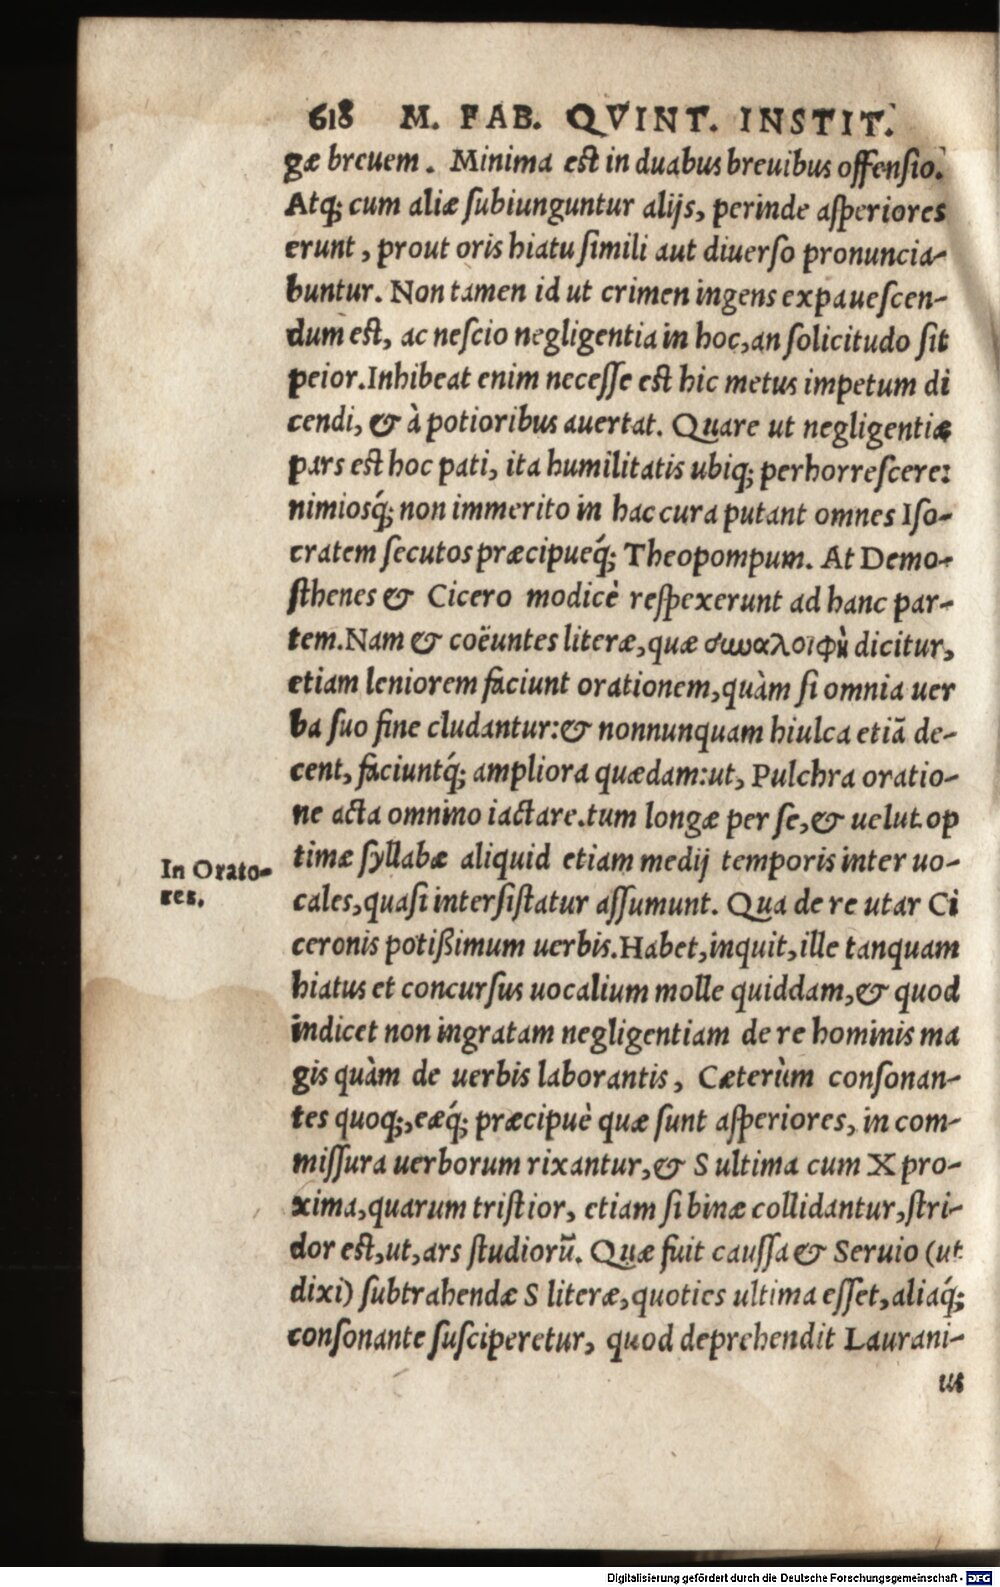 618 M. FAB. QVINT. INSTIT.
gæ breuem. Minima est in duabus breuibus offensio.
Atq; cum aliæ subiunguntur alijs, perinde asperiores
erunt, prout oris hiatu simili aut diuerso pronuncia-
buntur. Non tamen id ut crimen ingens expauescen-
dum est, ac nescio negligentia in hoc, an solicitudo sit
peior. Inhibeat enim necesse est hic metus impetum di
cendi, & à potioribus auertat. Quare ut negligentiæ
pars est hoc pati, ita humilitatis ubiq; perhorrescere:
nimiosq́; non immerito in hac cura putant omnes Iso-
cratem secutos præcipueq́; Theopompum. At Demo-
sthenes & Cicero modicè respexerunt ad hanc par-
tem. Nam & coëuntes literæ, quæ συναλοιφὴ dicitur,
etiam leniorem faciunt orationem, quàm si omnia uer
ba suo fine cludantur: & nonnunquam hiulca etiā de-
cent, faciuntq́; ampliora quædam: ut, Pulchra oratio-
ne acta omnino iactare. tum longæ per se, & uelut op
timæ syllabæ aliquid etiam medij temporis inter uo-
In Orato-
res.
cales, quasi intersistatur assumunt. Qua de re utar Ci
ceronis potißimum uerbis. Habet, inquit, ille tanquam
hiatus et concursus uocalium molle quiddam, & quod
indicet non ingratam negligentiam de re hominis ma
gis quàm de uerbis laborantis, Cæterùm consonan-
tes quoq;, eæq́; præcipuè quæ sunt asperiores, in com-
missura uerborum rixantur, & S ultima cum X pro-
xima, quarum tristior, etiam si binæ collidantur, stri-
dor est, ut, ars studiorū. Quæ fuit caussa & Seruio (ut
dixi) subtrahendæ S literæ, quoties ultima esset, aliaq́;
consonante susciperetur, quod deprehendit Laurani-
us
Digitalisierung gefördert durch die Deutsche Forschungsgemeinschaft - DFG